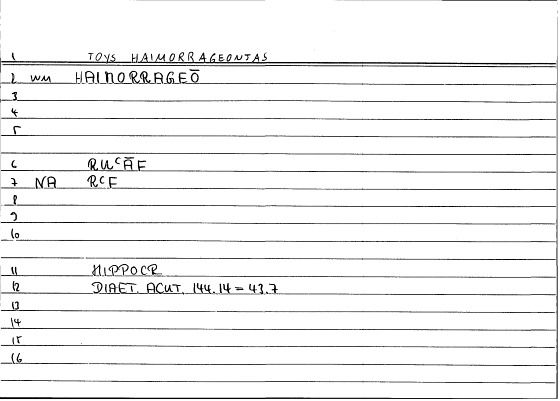 1 TOYS HAIMORRAGEONTAS
2 WM HAIMORRAGEŌ
3
4
5
6 RUᶜĀF
7 NA RᶜF
8
9
10
11 HIPPOCR
12 DIAET. ACUT. 144.14 = 43.7
13
14
15
16